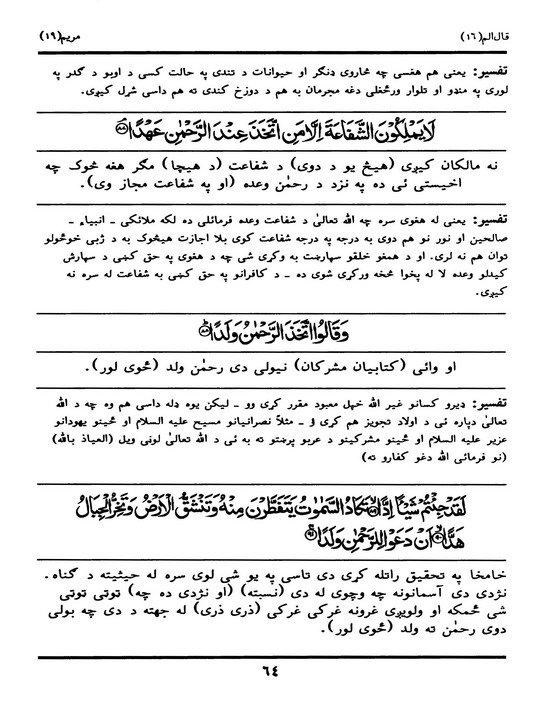 قال الم (١٦)
مريم (١٩)
تفسير: يعنى هم هغسى چه څاروى ډنګر او حيوانات د تندى په حالت كسى د اوبو د ګدر په
لورى په منډو او تلوار ورځغلى دغه مجرمان به هم د دوزخ كندى ته هم داسى شړل كيږى.
لَا يَمْلِكُونَ الشَّفَاعَةَ إِلَّا مَنِ اتَّخَذَ عِنْدَ الرَّحْمٰنِ عَهْدًا ﴿٨٧﴾
نه مالكان كيږى (هيڅ يو د دوى) د شفاعت (د هيچا) مګر هغه څوك چه
اخيستى ئى ده په نزد د رحمٰن وعده (او په شفاعت مجاز وى).
تفسير: يعنى له هغوى سره چه الله تعالىٰ د شفاعت وعده فرمائلى ده لكه ملائكى ـ انبياء ـ
صالحين او نور نو هم دوى به درجه په درجه شفاعت كوى بلا اجازت هيڅوك به د ژبى خوځولو
توان هم نه لرى. او د همغو خلقو سپارښت به وكړى شى چه د هغوى په حق كښى د سپارش
كيدلو وعده لا له پخوا څخه وركړى شوى ده ـ د كافرانو په حق كښى به شفاعت له سره نه
كيږى.
وَقَالُوا اتَّخَذَ الرَّحْمٰنُ وَلَدًا ﴿٨٨﴾
او وائى (كتابيان مشركان) نيولى دى رحمٰن ولد (ځوى لور).
تفسير: ډيرو كسانو غير الله خپل معبود مقرر كړى وو ـ ليكن يوه ډله داسى هم وه چه د الله
تعالىٰ دپاره ئى د اولاد تجويز هم كړى ؤ ـ مثلاً نصرانيانو مسيح عليه السلام او ځينو يهودانو
عزير عليه السلام او ځينو مشركينو د عربو پرښتو ته به ئى د الله تعالىٰ لوڼى ويل (العياذ بالله)
(نو فرمائى الله دغو كفارو ته)
لَقَدْ جِئْتُمْ شَيْئًا إِدًّا ﴿٨٩﴾ تَكَادُ السَّمٰوٰتُ يَتَفَطَّرْنَ مِنْهُ وَتَنْشَقُّ الْأَرْضُ وَتَخِرُّ الْجِبَالُ
هَدًّا ﴿٩٠﴾ أَنْ دَعَوْا لِلرَّحْمٰنِ وَلَدًا ﴿٩١﴾
خامخا په تحقيق راتله كړى دى تاسى په يو شى لوى سره له حيثيته د ګناه.
نژدى دى آسمانونه چه وچوى له دى (نسبته) (او نژدى ده چه) توټى توټى
شى ځمكه او ولويږى غرونه غركى غركى (ذرى ذرى) له جهته د دى چه بولى
دوى رحمٰن ته ولد (ځوى لور).
٦٤